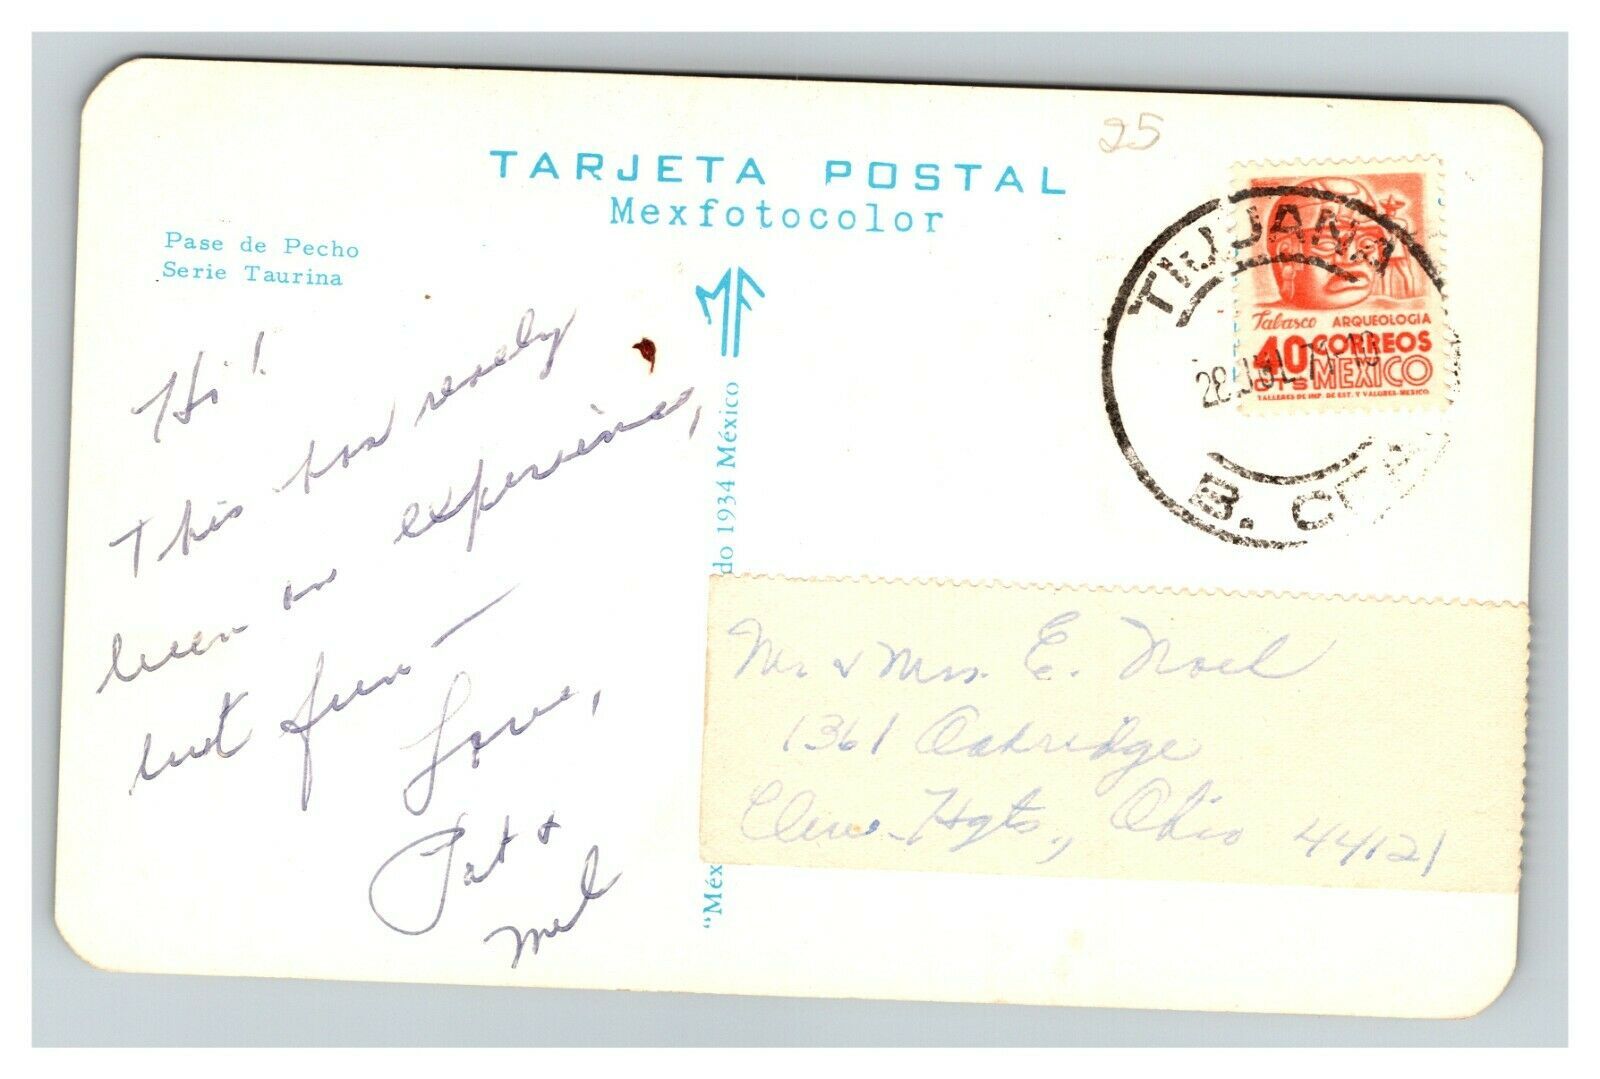 25
TARJETA POSTAL
Mexfotocolor
Pase de Pecho
Serie Taurina
MF
Hi!
This has really
been an experience,
but fun—
Love,
Pat &
Mel
"Méx
do 1934 México
TIJUANA
28 JUL 71
B. CFA
Tabasco ARQUEOLOGIA
40 CORREOS
CTS MEXICO
TALLERES DE IMP. DE EST. Y VALORES-MEXICO
Mr. & Mrs. E. Noel
1361 Oakridge
Cleve. Hgts., Ohio 44121